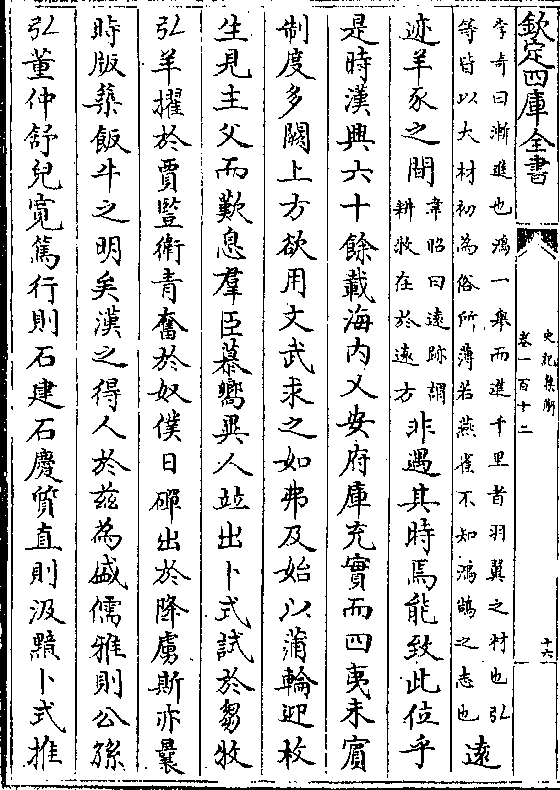 欽定四庫全書
史記集解
卷一百十二
十六
李奇曰漸進也鴻一舉而進千里者羽翼之材也弘
等皆以大材初為俗所薄若燕雀不知鴻鵠之志也
遠
迹羊豕之間
韋昭曰遠跡謂
耕牧在於遠方
非遇其時焉能致此位乎
是時漢興六十餘載海内乂安府庫充實而四夷未賓
制度多闕上方欲用文武求之如弗及始以蒲輪迎枚
生見主父而歎息羣臣慕嚮異人竝出卜式試於芻牧
弘羊擢於賈豎衛青奮於奴僕日磾出於降虜斯亦曩
時版築飯牛之明矣漢之得人於兹為盛儒雅則公孫
弘董仲舒兒寛篤行則石建石慶質直則汲黯卜式推